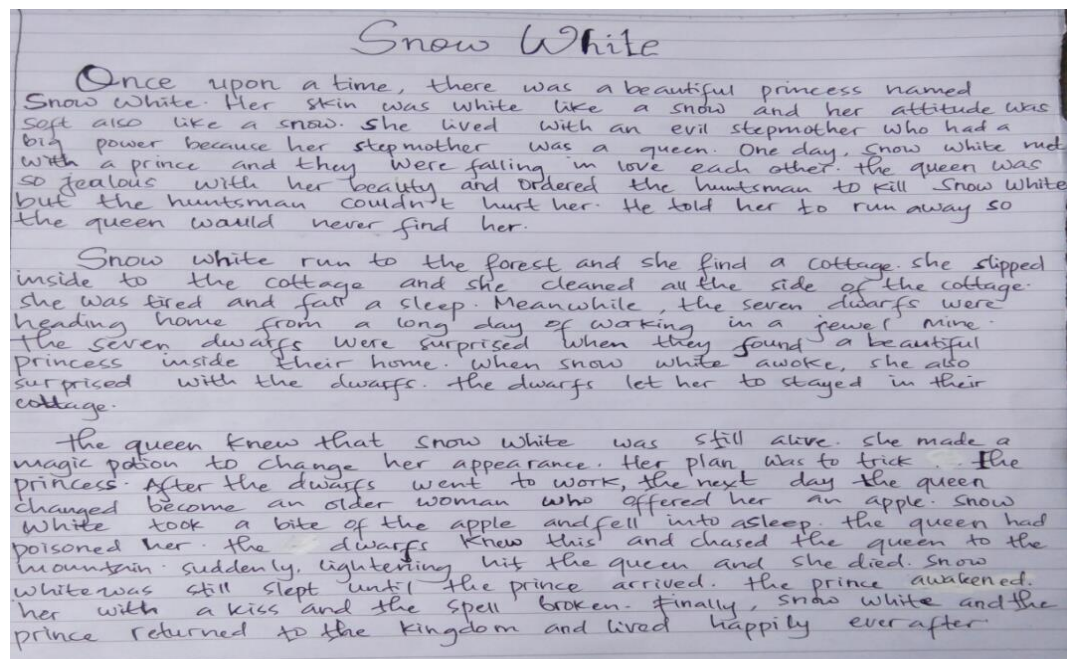 Snow White
Once upon a time, there was a beautiful princess named
Snow White. Her skin was white like a snow and her attitude was
soft also like a snow. She lived with an evil stepmother who had a
big power because her stepmother was a queen. One day, snow white met
with a prince and they were falling in love each other. the queen was
so jealous with her beauty and ordered the huntsman to kill Snow White
but the huntsman couldn't hurt her. He told her to run away so
the queen would never find her.
Snow white run to the forest and she find a cottage. she slipped
inside to the cottage and she cleaned all the side of the cottage.
she was tired and fall a sleep. Meanwhile, the seven dwarfs were
heading home from a long day of working in a jewel mine.
the seven dwarfs were surprised when they found a beautiful
princess inside their home. when snow white awoke, she also
surprised with the dwarfs. the dwarfs let her to stayed in their
cottage.
the queen knew that snow white was still alive. she made a
magic potion to change her appearance. Her plan was to trick the
princess. After the dwarfs went to work, the next day the queen
changed become an older woman who offered her an apple. snow
white took a bite of the apple and fell into asleep. the queen had
poisoned her. the dwarfs knew this and chased the queen to the
mountain. suddenly, lightening hit the queen and she died. snow
white was still slept until the prince arrived. the prince awakened.
her with a kiss and the spell broken. Finally, snow white and the
prince returned to the kingdom and lived happily ever after.